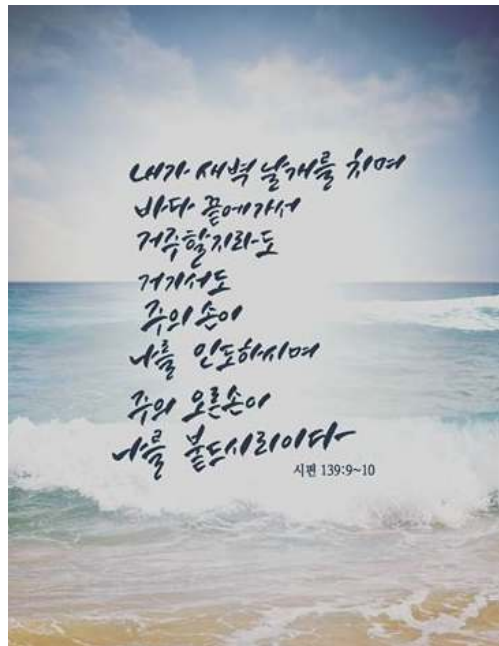 내가 새벽 날개를 치며
바다 끝에가서
거주할지라도
거기서도
주의 손이
나를 인도하시며
주의 오른손이
나를 붙드시리이다
시편 139:9~10